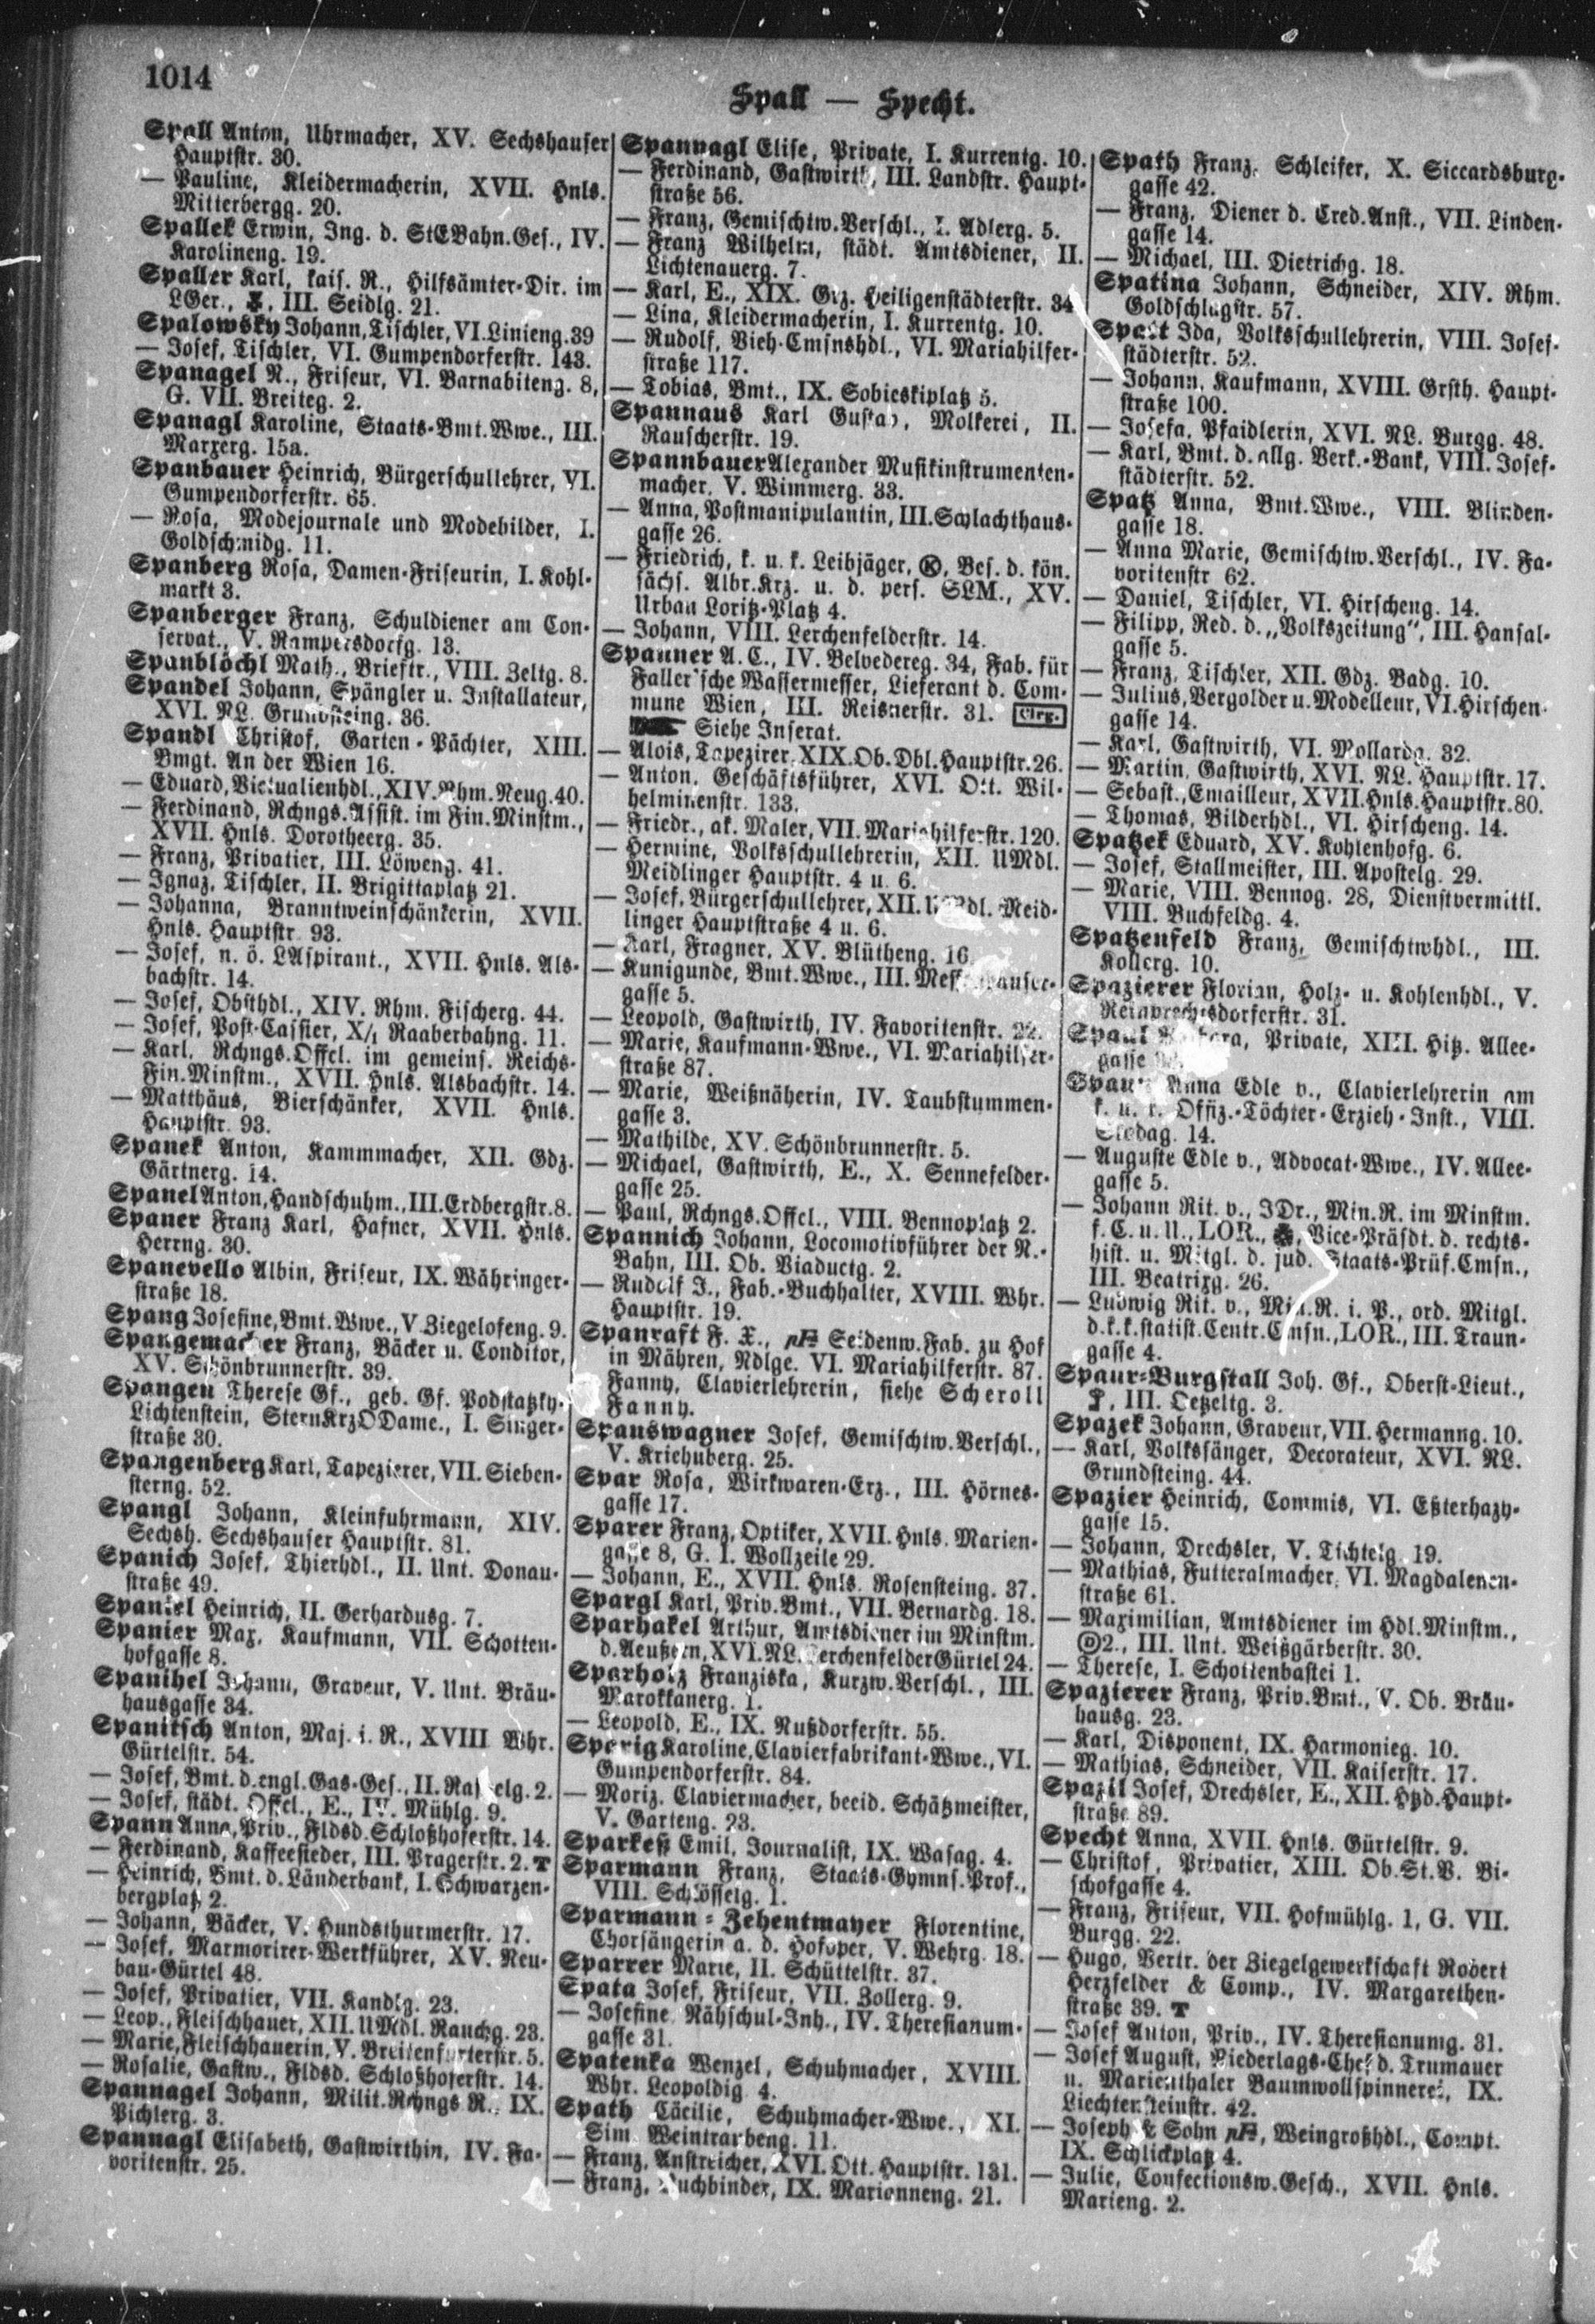 1014
Spall — Specht.
Spall Anton, Uhrmacher, XV. Sechshauser
Hauptstr. 30.
— Pauline, Kleidermacherin, XVII. Hnls.
Mitterbergg. 20.
Spallek Erwin, Ing. d. StEBahn.Ges., IV.
Karolineng. 19.
Spaller Karl, kais. R., Hilfsämter-Dir. im
LGer., III. Seidlg. 21.
Spalowsky Johann, Tischler, VI. Linieng. 39
— Josef, Tischler, VI. Gumpendorferstr. 143.
Spanagel N., Friseur, VI. Barnabiteng. 8,
G. VII. Breiteg. 2.
Spanagl Karoline, Staats-Bmt.Wwe., III.
Marxerg. 15a.
Spanbauer Heinrich, Bürgerschullehrer, VI.
Gumpendorferstr. 65.
— Rosa, Modejournale und Modebilder, I.
Goldschmidg. 11.
Spanberg Rosa, Damen-Friseurin, I. Kohl-
markt 3.
Spanberger Franz, Schuldiener am Con-
servat., V. Rampersdorfg. 13.
Spanblöchl Math., Brieftr., VIII. Zeltg. 8.
Spandel Johann, Spängler u. Installateur,
XVI. NL. Grundsteing. 36.
Spandl Christof, Garten-Pächter, XIII.
Bmgt. An der Wien 16.
— Eduard, Victualienhdl., XIV. Rhm. Neug. 40.
— Ferdinand, Rchngs.Assist. im Fin.Minstm.,
XVII. Hnls. Dorotheerg. 35.
— Franz, Privatier, III. Löweng. 41.
— Ignaz, Tischler, II. Brigittaplatz 21.
— Johanna, Branntweinschänkerin, XVII.
Hnls. Hauptstr. 93.
— Josef, n. ö. LAspirant., XVII. Hnls. Als-
bachstr. 14.
— Josef, Obsthdl., XIV. Rhm. Fischerg. 44.
— Josef, Post-Cassier, X/1 Raaberbahng. 11.
— Karl, Rchngs.Offcl. im gemeins. Reichs-
Fin.Minstm., XVII. Hnls. Alsbachstr. 14.
— Matthäus, Bierschänker, XVII. Hnls.
Hauptstr. 93.
Spanek Anton, Kammmacher, XII. Gdz.
Gärtnerg. 14.
Spanel Anton, Handschuhm., III. Erdbergstr. 8.
Spaner Franz Karl, Hafner, XVII. Hnls.
Herrng. 30.
Spanevello Albin, Friseur, IX. Währinger-
straße 18.
Spang Josefine, Bmt.Wwe., V. Ziegelofeng. 9.
Spangemacher Franz, Bäcker u. Conditor,
XV. Schönbrunnerstr. 39.
Spangen Therese Gf., geb. Gf. Podstatzky-
Lichtenstein, SternKrzODame., I. Singer-
straße 30.
Spangenberg Karl, Tapezierer, VII. Sieben-
sterng. 52.
Spangl Johann, Kleinfuhrmann, XIV.
Sechsh. Sechshauser Hauptstr. 81.
Spanich Josef, Thierhdl., II. Unt. Donau-
straße 49.
Spaniel Heinrich, II. Gerhardusg. 7.
Spanier Max, Kaufmann, VII. Schotten-
hofgasse 8.
Spanihel Johann, Graveur, V. Unt. Bräu-
hausgasse 34.
Spanitsch Anton, Maj. i. R., XVIII Whr.
Gürtelstr. 54.
— Josef, Bmt. d. engl. Gas-Ges., II. 2.
— Josef, städt. Offcl., E., IV. Mühlg. 9.
Spann Anna, Priv., Fldsd. Schloßhoferstr. 14.
— Ferdinand, Kaffeesieder, III. Pragerstr. 2. T
— Heinrich, Bmt. d. Länderbank, I. Schwarzen-
bergplatz 2.
— Johann, Bäcker, V. Hundsthurmerstr. 17.
— Josef, Marmorirer-Werkführer, XV. Neu-
bau-Gürtel 48.
— Josef, Privatier, VII. Kandlg. 23.
— Leop., Fleischhauer, XII. UMdl. Rauchg. 23.
— Marie, Fleischhauerin, V. Breitenfurterstr. 5.
— Rosalie, Gastw., Fldsd. Schloßhoferstr. 14.
Spannagel Johann, Milit.Rchngs R., IX.
Pichlerg. 3.
Spannagl Elisabeth, Gastwirthin, IV. Fa-
voritenstr. 25.
Spannagl Elise, Private, I. Kurrentg. 10.
— Ferdinand, Gastwirth, III. Landstr. Haupt-
straße 56.
— Franz, Gemischtw.Verschl., I. Adlerg. 5.
— Franz Wilhelm, städt. Amtsdiener, II.
Lichtenauerg. 7.
— Karl, E., XIX. Grz. Heiligenstädterstr. 34
— Lina, Kleidermacherin, I. Kurrentg. 10.
— Rudolf, Vieh-Cmsnshdl., VI. Mariahilfer-
straße 117.
— Tobias, Bmt., IX. Sobieskiplatz 5.
Spannaus Karl Gustav, Molkerei, II.
Rauscherstr. 19.
Spannbauer Alexander Musikinstrumenten-
macher, V. Wimmerg. 33.
— Anna, Postmanipulantin, III. Schlachthaus-
gasse 26.
— Friedrich, k. u. k. Leibjäger, Ⓚ, Bes. d. kön.
sächs. Albr.Krz. u. d. pers. SLM., XV.
Urban Loritz-Platz 4.
— Johann, VIII. Lerchenfelderstr. 14.
Spanner A. C., IV. Belvedereg. 34, Fab. für
Faller'sche Wassermesser, Lieferant d. Com-
mune Wien, III. Reisnerstr. 31. Clrg.
Siehe Inserat.
— Alois, Tapezirer, XIX. Ob. Dbl. Hauptstr. 26.
— Anton, Geschäftsführer, XVI. Ott. Wil-
helminenstr. 133.
— Friedr., ak. Maler, VII. Mariahilferstr. 120.
— Hermine, Volksschullehrerin, XII. UMdl.
Meidlinger Hauptstr. 4 u. 6.
— Josef, Bürgerschullehrer, XII. UMdl. Meid-
linger Hauptstraße 4 u. 6.
— Karl, Fragner, XV. Blütheng. 16.
— Kunigunde, Bmt.Wwe., III.
gasse 5.
— Leopold, Gastwirth, IV. Favoritenstr. 22.
— Marie, Kaufmann-Wwe., VI. Mariahilfer-
straße 87.
— Marie, Weißnäherin, IV. Taubstummen-
gasse 3.
— Mathilde, XV. Schönbrunnerstr. 5.
— Michael, Gastwirth, E., X. Sennefelder-
gasse 25.
— Paul, Rchngs.Offcl., VIII. Bennoplatz 2.
Spannich Johann, Locomotivführer der N.-
Bahn, III. Ob. Viaductg. 2.
— Rudolf J., Fab.-Buchhalter, XVIII. Whr.
Hauptstr. 19.
Spanraft F. X., Seidenw.Fab. zu Hof
in Mähren, Ndlge. VI. Mariahilferstr. 87.
Fanny, Clavierlehrerin, siehe Scheroll
Fanny.
Spanswagner Josef, Gemischtw.Verschl.,
V. Kriehuberg. 25.
Spar Rosa, Wirkwaren-Erz., III. Hörnes-
gasse 17.
Sparer Franz, Optiker, XVII. Hnls. Marien-
gasse 8, G. I. Wollzeile 29.
— Johann, E., XVII. Hnls. Rosensteing. 37.
Spargl Karl, Priv.Bmt., VII. Bernardg. 18.
Sparhakel Arthur, Amtsdiener im Minstm.
d. Aeußern, XVI. NL. Lerchenfelder Gürtel 24.
Sparholz Franziska, Kurzw.Verschl., III.
Marokkanerg. 1.
— Leopold, E., IX. Nußdorferstr. 55.
Sparig Karoline, Clavierfabrikant-Wwe., VI.
Gumpendorferstr. 84.
— Moriz, Claviermacher, beeid. Schätzmeister,
V. Garteng. 23.
Sparkeß Emil, Journalist, IX. Wasag. 4.
Sparmann Franz, Staats-Gymns.Prof.,
VIII. Schlösselg. 1.
Sparmann-Zehentmayer Florentine,
Chorsängerin a. d. Hofoper, V. Wehrg. 18.
Sparrer Marie, II. Schüttelstr. 37.
Spata Josef, Friseur, VII. Zollerg. 9.
— Josefine Nähschul-Inh., IV. Theresianum-
gasse 31.
Spatenka Wenzel, Schuhmacher, XVIII.
Whr. Leopoldig. 4.
Spath Cäcilie, Schuhmacher-Wwe., XI.
Sim. Weintraubeng. 11.
— Franz, Anstreicher, XVI. Ott. Hauptstr. 131.
— Franz, Buchbinder, IX. Marianneng. 21.
Spath Franz, Schleifer, X. Siccardsburg-
gasse 42.
— Franz, Diener d. Cred.Anst., VII. Linden-
gasse 14.
— Michael, III. Dietrichg. 18.
Spatina Johann, Schneider, XIV. Rhm.
Goldschlagstr. 57.
Spatt Ida, Volksschullehrerin, VIII. Josef-
städterstr. 52.
— Johann, Kaufmann, XVIII. Grsth. Haupt-
straße 100.
— Josefa, Pfaidlerin, XVI. NL. Burgg. 48.
— Karl, Bmt. d. allg. Verk.-Bank, VIII. Josef-
städterstr. 52.
Spatz Anna, Bmt.Wwe., VIII. Blinden-
gasse 18.
— Anna Marie, Gemischtw.Verschl., IV. Fa-
voritenstr 62.
— Daniel, Tischler, VI. Hirscheng. 14.
— Filipp, Red. d. „Volkszeitung“, III. Hansal-
gasse 5.
— Franz, Tischler, XII. Gdz. Badg. 10.
— Julius, Vergolder u. Modelleur, VI. Hirschen-
gasse 14.
— Karl, Gastwirth, VI. Mollardg. 32.
— Martin, Gastwirth, XVI. NL. Hauptstr. 17.
— Sebast., Emailleur, XVII. Hnls. Hauptstr. 80.
— Thomas, Bilderhdl., VI. Hirscheng. 14.
Spatzek Eduard, XV. Kohlenhofg. 6.
— Josef, Stallmeister, III. Apostelg. 29.
— Marie, VIII. Bennog. 28, Dienstvermittl.
VIII. Buchfeldg. 4.
Spatzenfeld Franz, Gemischtwhdl., III.
Kollerg. 10.
Spazierer Florian, Holz- u. Kohlenhdl., V.
Reinprechtsdorferstr. 31.
Spaul Barbara, Private, XIII. Hitz. Allee-
gasse
Spaun Anna Edle v., Clavierlehrerin am
k. u. k. Offiz.-Töchter-Erzieh-Inst., VIII.
Skodag. 14.
— Auguste Edle v., Advocat-Wwe., IV. Allee-
gasse 5.
— Johann Rit. v., JDr., Min.R. im Minstm.
f. C. u. U., LOR., Vice-Präsdt. d. rechts-
hist. u. Mitgl. d. jud. Staats-Prüf.Cmsn.,
III. Beatrixg. 26.
— Ludwig Rit. v., Min.R. i. P., ord. Mitgl.
d. k. k. statist. Centr.Cmsn., LOR., III. Traun-
gasse 4.
Spaur-Burgstall Joh. Gf., Oberst-Lieut.,
III. Oetzeltg. 3.
Spazek Johann, Graveur, VII. Hermanng. 10.
— Karl, Volkssänger, Decorateur, XVI. NL.
Grundsteing. 44.
Spazier Heinrich, Commis, VI. Eßterhazy-
gasse 15.
— Johann, Drechsler, V. Tichtelg. 19.
— Mathias, Futteralmacher, VI. Magdalenen-
straße 61.
— Maximilian, Amtsdiener im Hdl.Minstm.,
Ⓓ2., III. Unt. Weißgärberstr. 30.
— Therese, I. Schottenbastei 1.
Spazierer Franz, Priv.Bmt., V. Ob. Bräu-
hausg. 23.
— Karl, Disponent, IX. Harmonieg. 10.
— Mathias, Schneider, VII. Kaiserstr. 17.
Spazil Josef, Drechsler, E., XII. Htzd. Haupt-
straße 89.
Specht Anna, XVII. Hnls. Gürtelstr. 9.
— Christof, Privatier, XIII. Ob. St. V. Bi-
schofgasse 4.
— Franz, Friseur, VII. Hofmühlg. 1, G. VII.
Burgg. 22.
— Hugo, Vertr. der Ziegelgewerkschaft Robert
Herzfelder & Comp., IV. Margarethen-
straße 39. T
— Josef Anton, Priv., IV. Theresianumg. 31.
— Josef August, Niederlags-Chef d. Trumauer
u. Marienthaler Baumwollspinnerei, IX.
Liechtensteinstr. 42.
— Joseph & Sohn, Weingroßhdl., Compt.
IX. Schlickplatz 4.
— Julie, Confectionsw.Gesch., XVII. Hnls.
Marieng. 2.